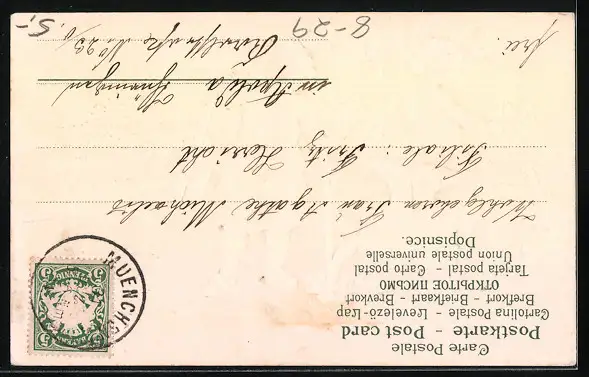 Carte Postale
Postkarte - Post card
Cartolina Postale - Levelező-Lap
Brefkort - Briefkaart - Brevkort
ОТКРЫТОЕ ПИСЬМО
Tarjeta postal - Carto postal
Union postale universelle
Dopisnice.
MUENCH
5 PFENNIG 5
BAYERN
Wohlgeboren Frau Agathe Michaelis
Filiale: Fritz
in Apolda
No 23
frei.
8-29
5,-